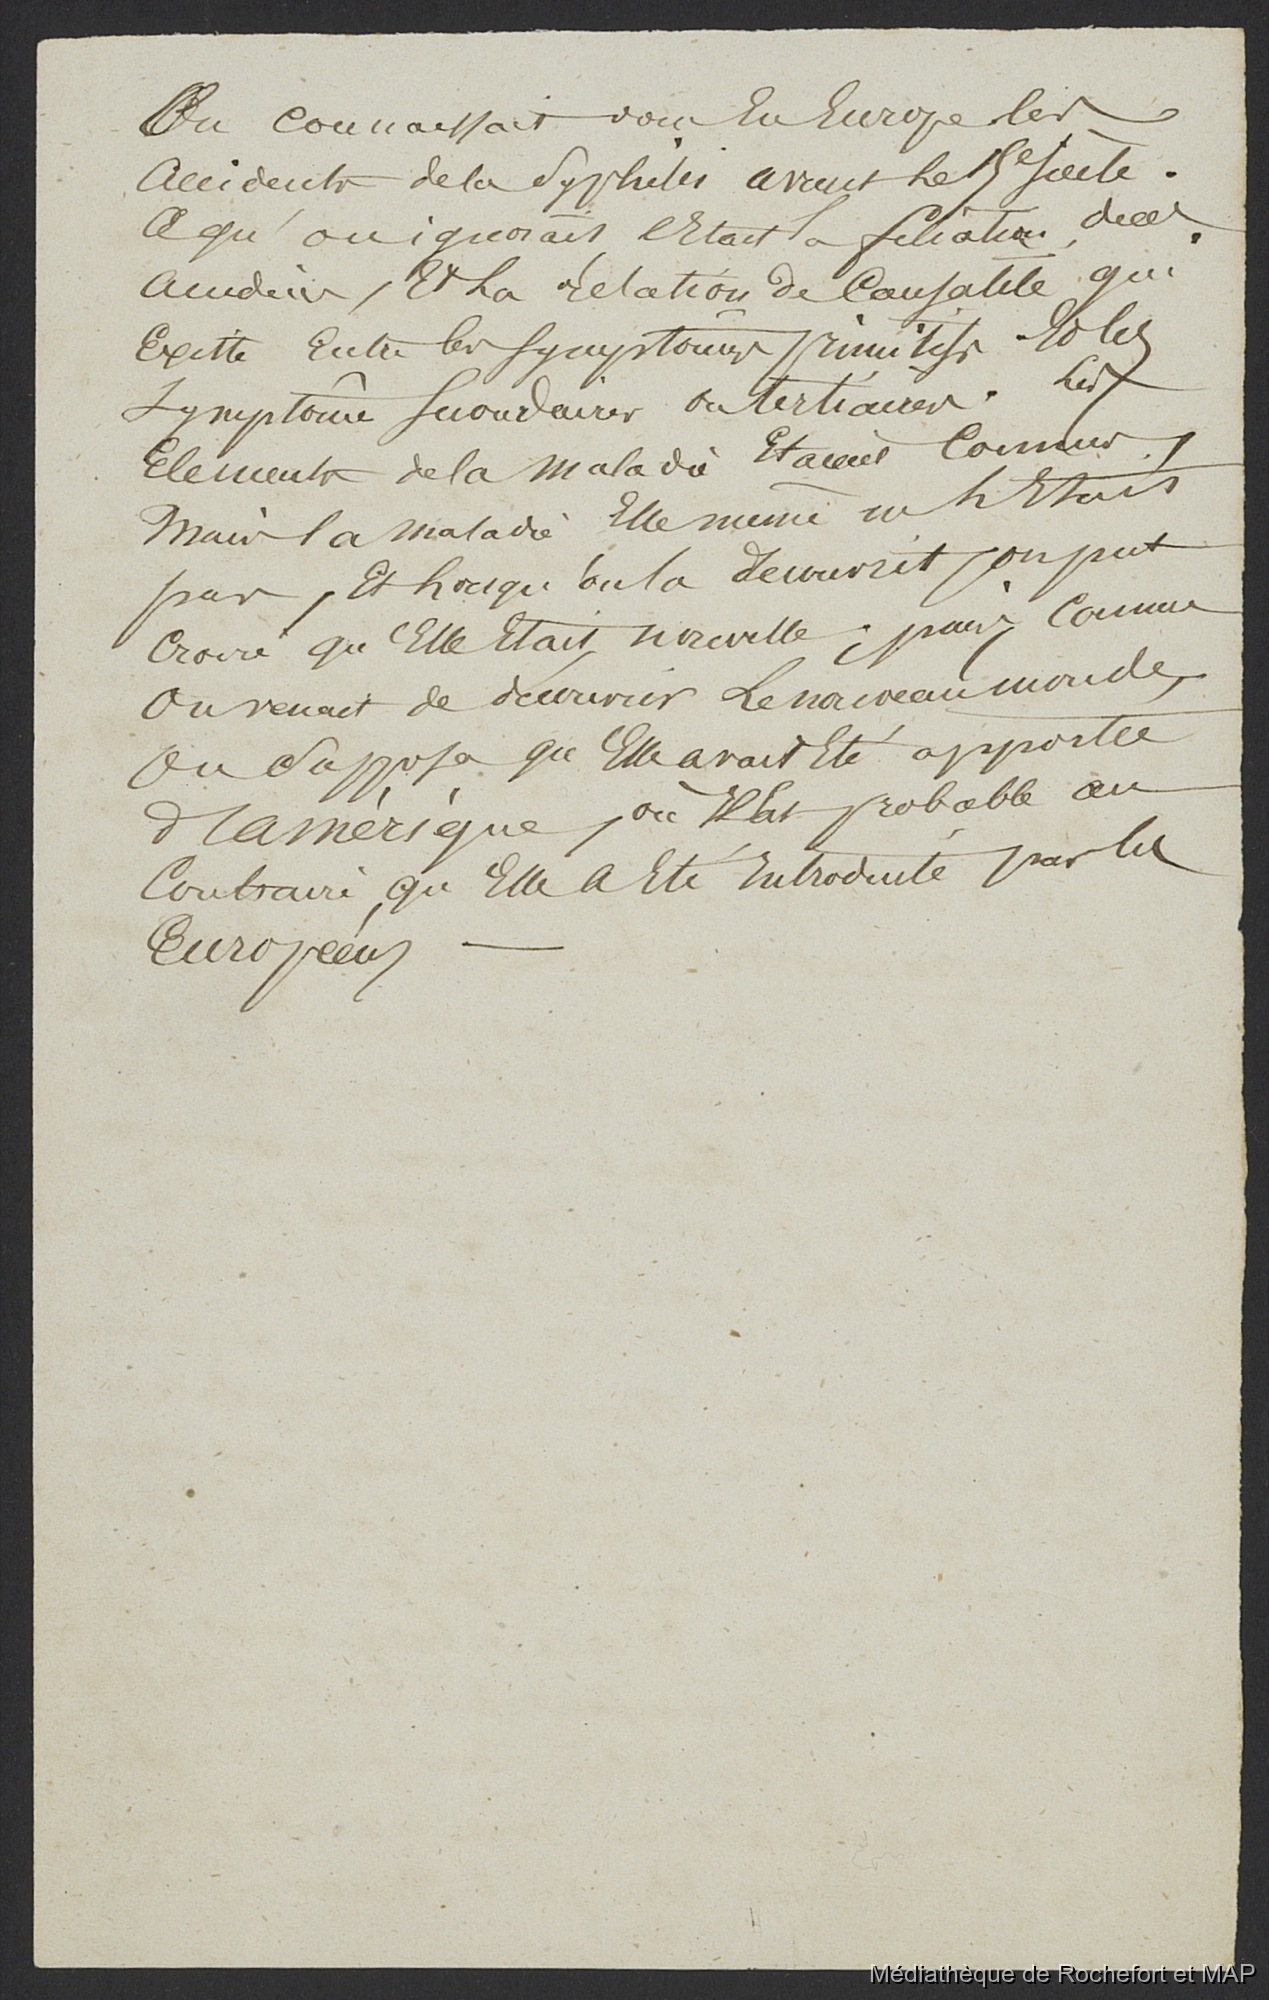 On connaissait donc En Europe les
accidents de la Syphilis avant le 15e siecle.
Ce qu'on ignorait c'Etait la filiation de ces
accidens, Et La relation de Causalité qui
Existe Entre les symptômes primitifs Et les
Symptôme secondaires ou tertiaires. Les
Elements de la maladie Etaient Connus,
Mais la maladie Elle même ne l'Etait
pas, Et lorsqu'on la decouvrit, on put
Croire qu'Elle Etait nouvelle ; puis, Comme
On venait de decouvrir Le nouveau monde,
On Supposa qu'Elle avait Eté apportée
d'lamérique, où Il Est probable au
Contraire, qu'Elle a Eté Introduite par les
Européens —
Médiathèque de Rochefort et MAP